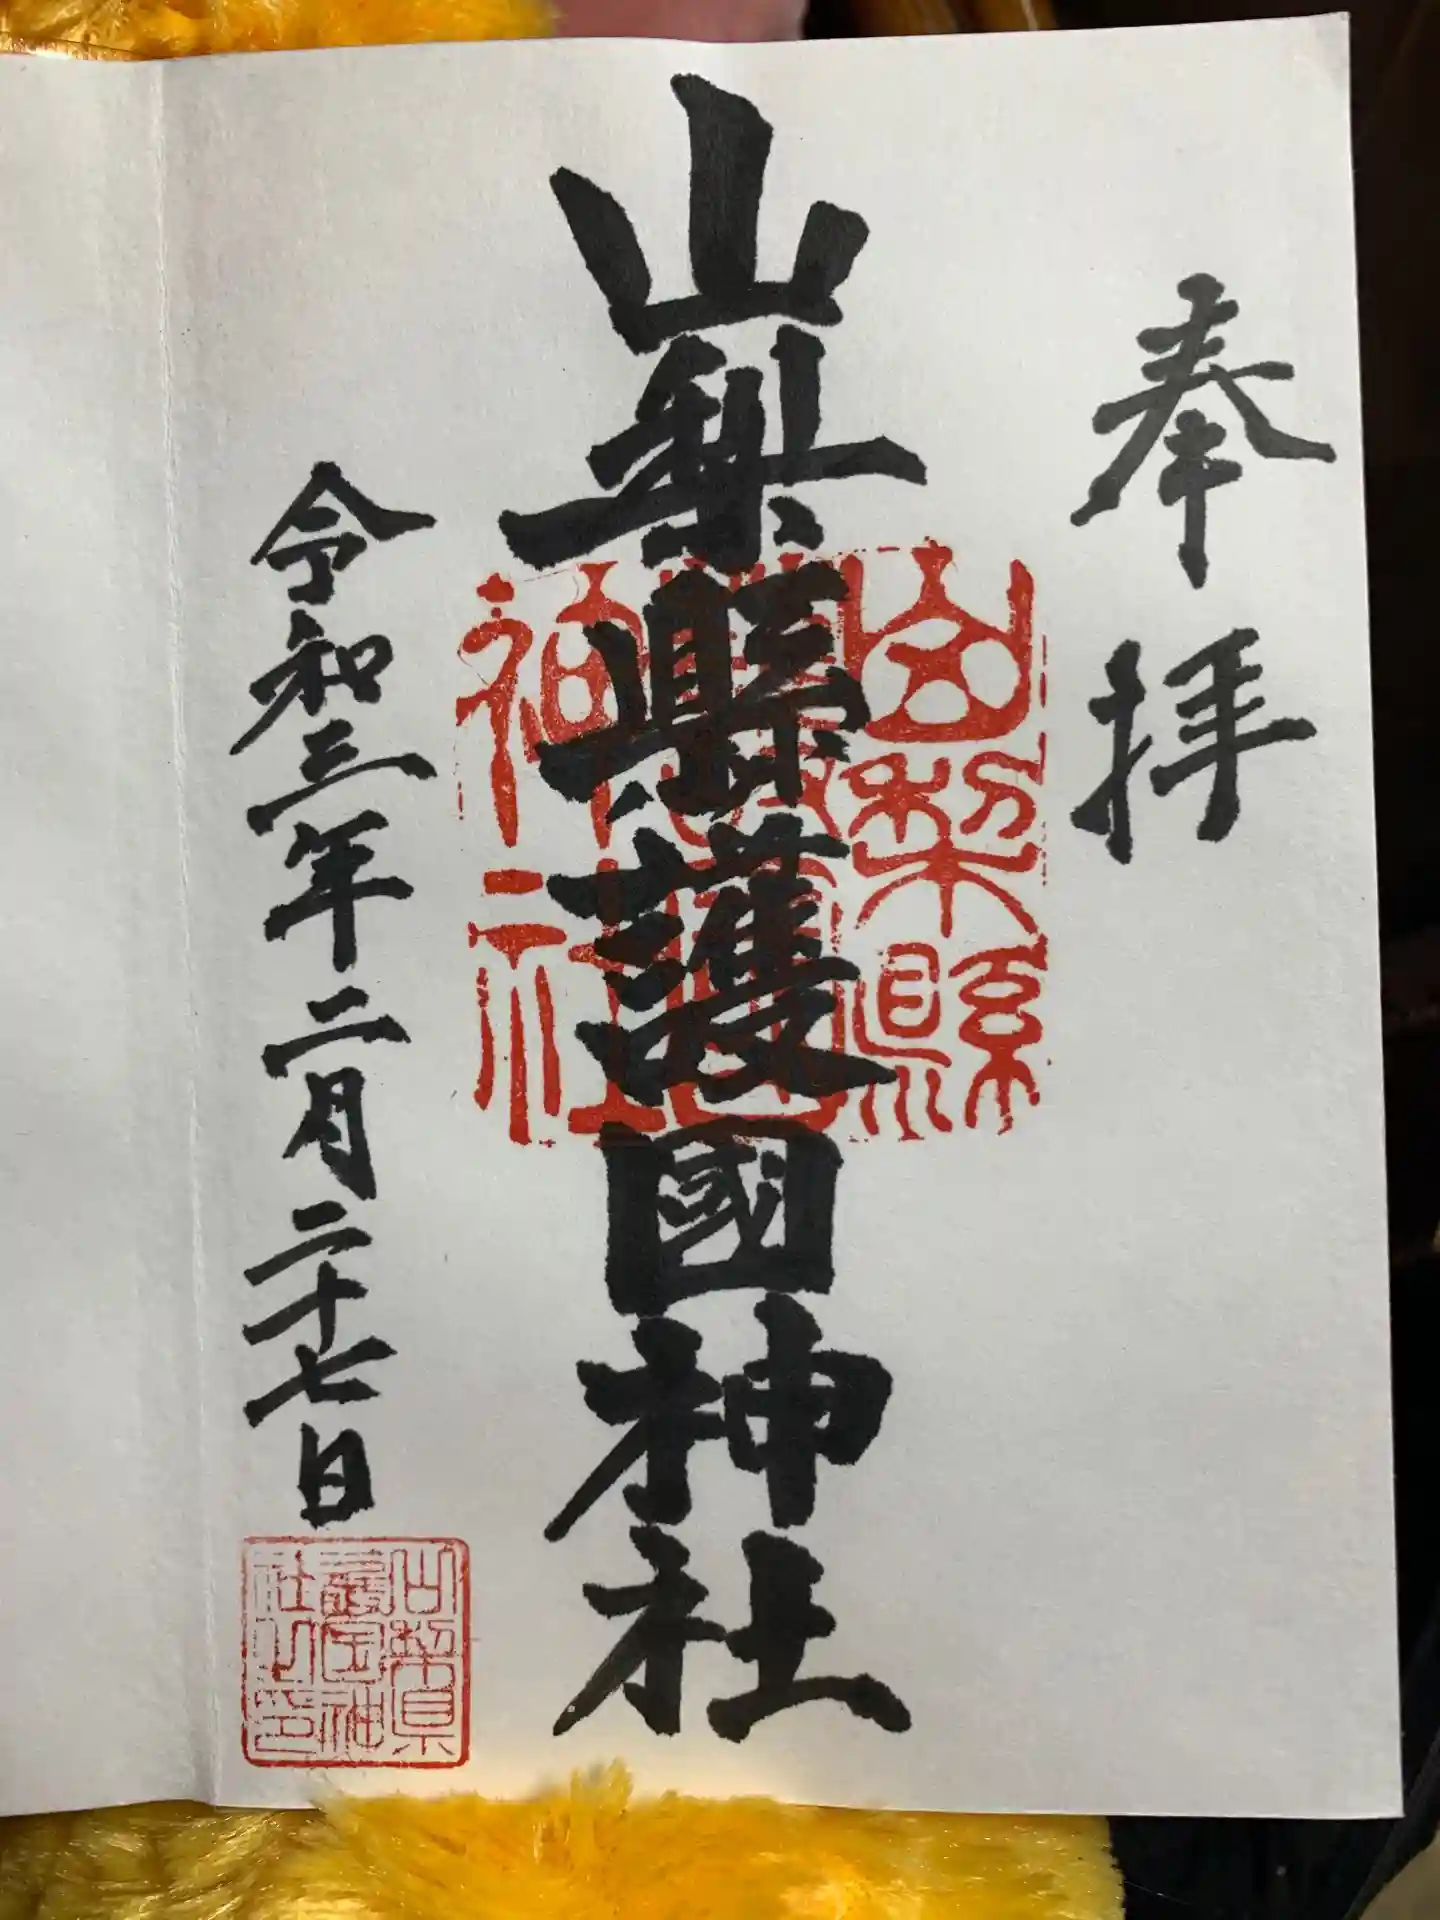 奉拝
山梨縣護國神社
山梨縣
護國
神社
令和三年二月二十七日
山梨県
護国神
社之印